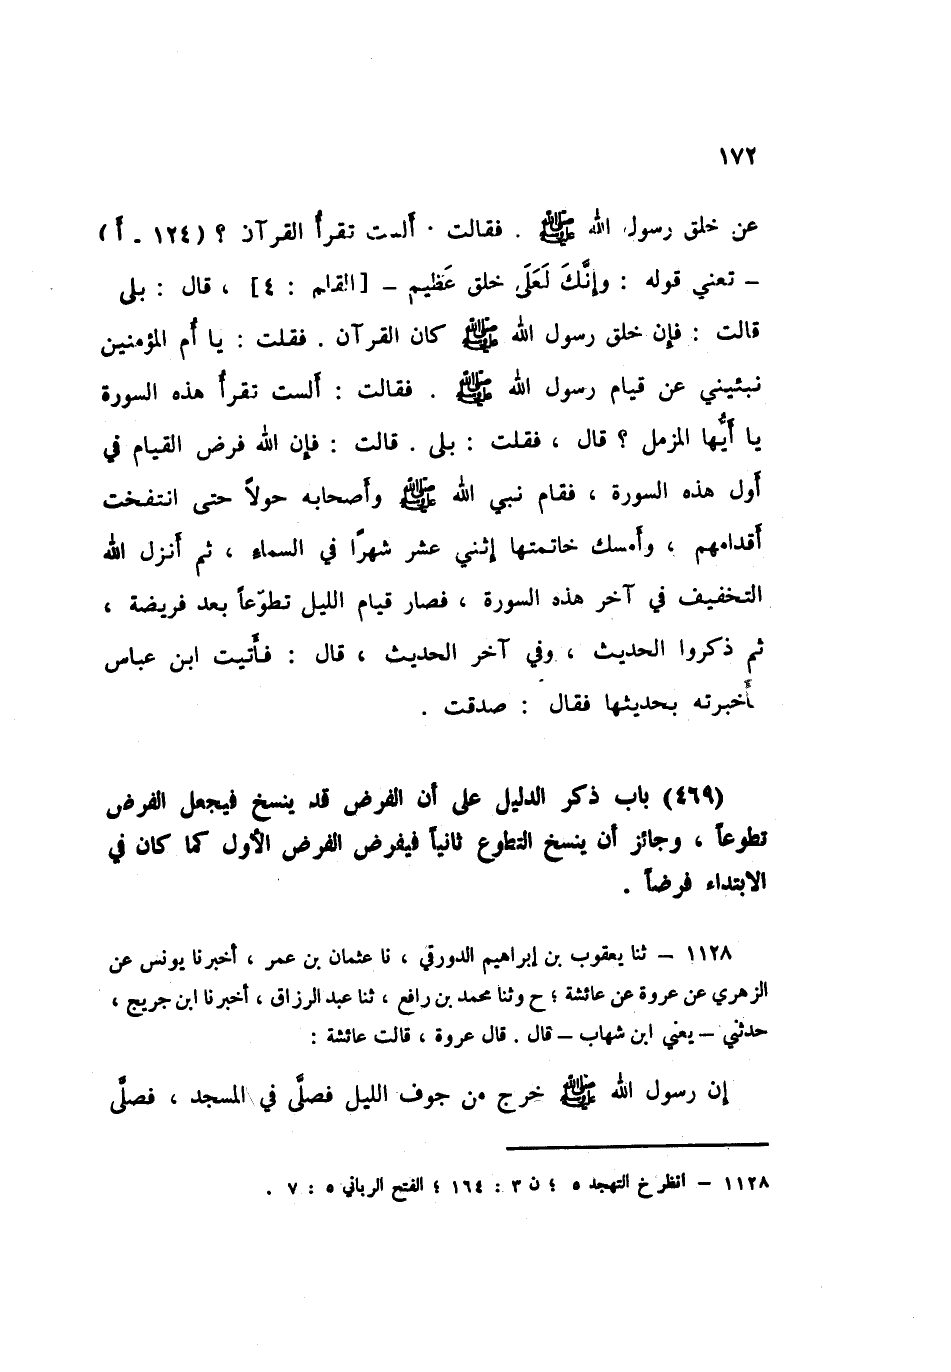 ١٧٢
عن خلق رسول الله ﷺ . فقالت · ألست تقرأ القرآن ؟ (١٢٤ ـ أ)
ـ تعني قوله : وإنَّكَ لَعَلَى خلق عَظيم ـ [القلم : ٤] ، قال : بلى
قالت : فإن خلق رسول الله ﷺ كان القرآن . فقلت : يا أم المؤمنين
نبئيني عن قيام رسول الله ﷺ . فقالت : ألست تقرأ هذه السورة
يا أيُّها المزمل ؟ قال ، فقلت : بلى . قالت : فإن الله فرض القيام في
أول هذه السورة ، فقام نبي الله ﷺ وأصحابه حولاً حتى انتفخت
أقدامهم ، وأمسك خاتمتها إثني عشر شهرًا في السماء ، ثم أنزل الله
التخفيف في آخر هذه السورة ، فصار قيام الليل تطوّعاً بعد فريضة ،
ثم ذكروا الحديث ، وفي آخر الحديث ، قال : فأتيت ابن عباس
أخبرته بحديثها فقال : صدقت .
(٤٦٩) باب ذكر الدليل على أن الفرض قد ينسخ فيجعل الفرض
تطوعاً ، وجائز أن ينسخ التطوع ثانياً فيفرض الفرض الأول كما كان في
الابتداء فرضاً .
١١٢٨ ـ ثنا يعقوب بن إبراهيم الدورقي ، نا عثمان بن عمر ، أخبرنا يونس عن
الزهري عن عروة عن عائشة ؛ ح وثنا محمد بن رافع ، ثنا عبد الرزاق ، أخبرنا ابن جريج ،
حدثني ـ يعني ابن شهاب ـ قال . قال عروة ، قالت عائشة :
إن رسول الله ﷺ خرج من جوف الليل فصلَّى في المسجد ، فصلَّى
١١٢٨ ـ انظر خ التهجد ٥ ؛ ن ٣ : ١٦٤ ؛ الفتح الرباني ٥ : ٧ .